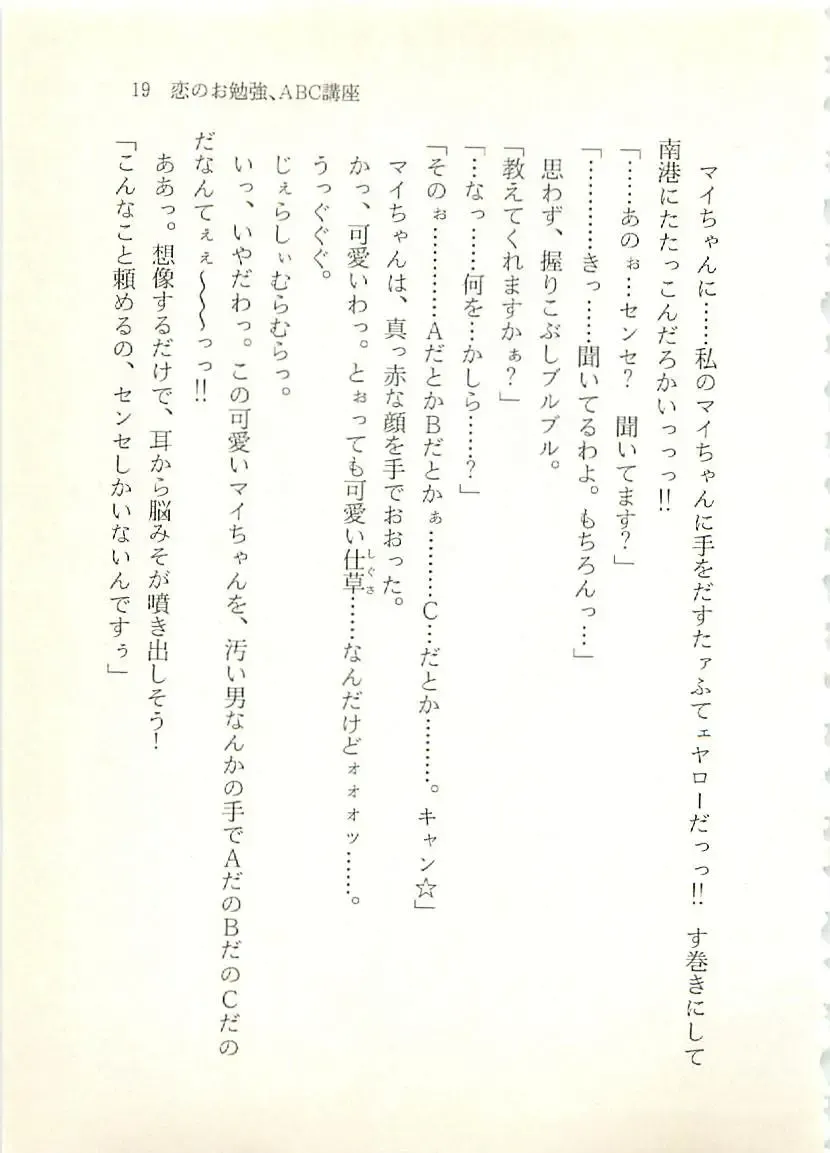 19 恋のお勉強、ABC講座
マイちゃんに……私のマイちゃんに手をだすたァふてェヤローだっっ!! す巻きにして
南港にたたっこんだろかいっっっ!!
「……あのぉ…センセ? 聞いてます?」
「…………きっ……聞いてるわよ。もちろんっ…」
思わず、握りこぶしブルブル。
「教えてくれますかぁ?」
「…なっ……何を…かしら……?」
「そのぉ…………AだとかBだとかぁ………C…だとか………。キャン☆」
マイちゃんは、真っ赤な顔を手でおおった。
かっ、可愛いわっ。とぉっても可愛い仕草しぐさ……なんだけどォォォッ……。
うっぐぐぐ。
じぇらしぃむらむらっ。
いっ、いやだわっ。この可愛いマイちゃんを、汚い男なんかの手でAだのBだのCだの
だなんてぇぇ〜〜〜っっ!!
ああっ。想像するだけで、耳から脳みそが噴き出しそう!
「こんなこと頼めるの、センセしかいないんですぅ」